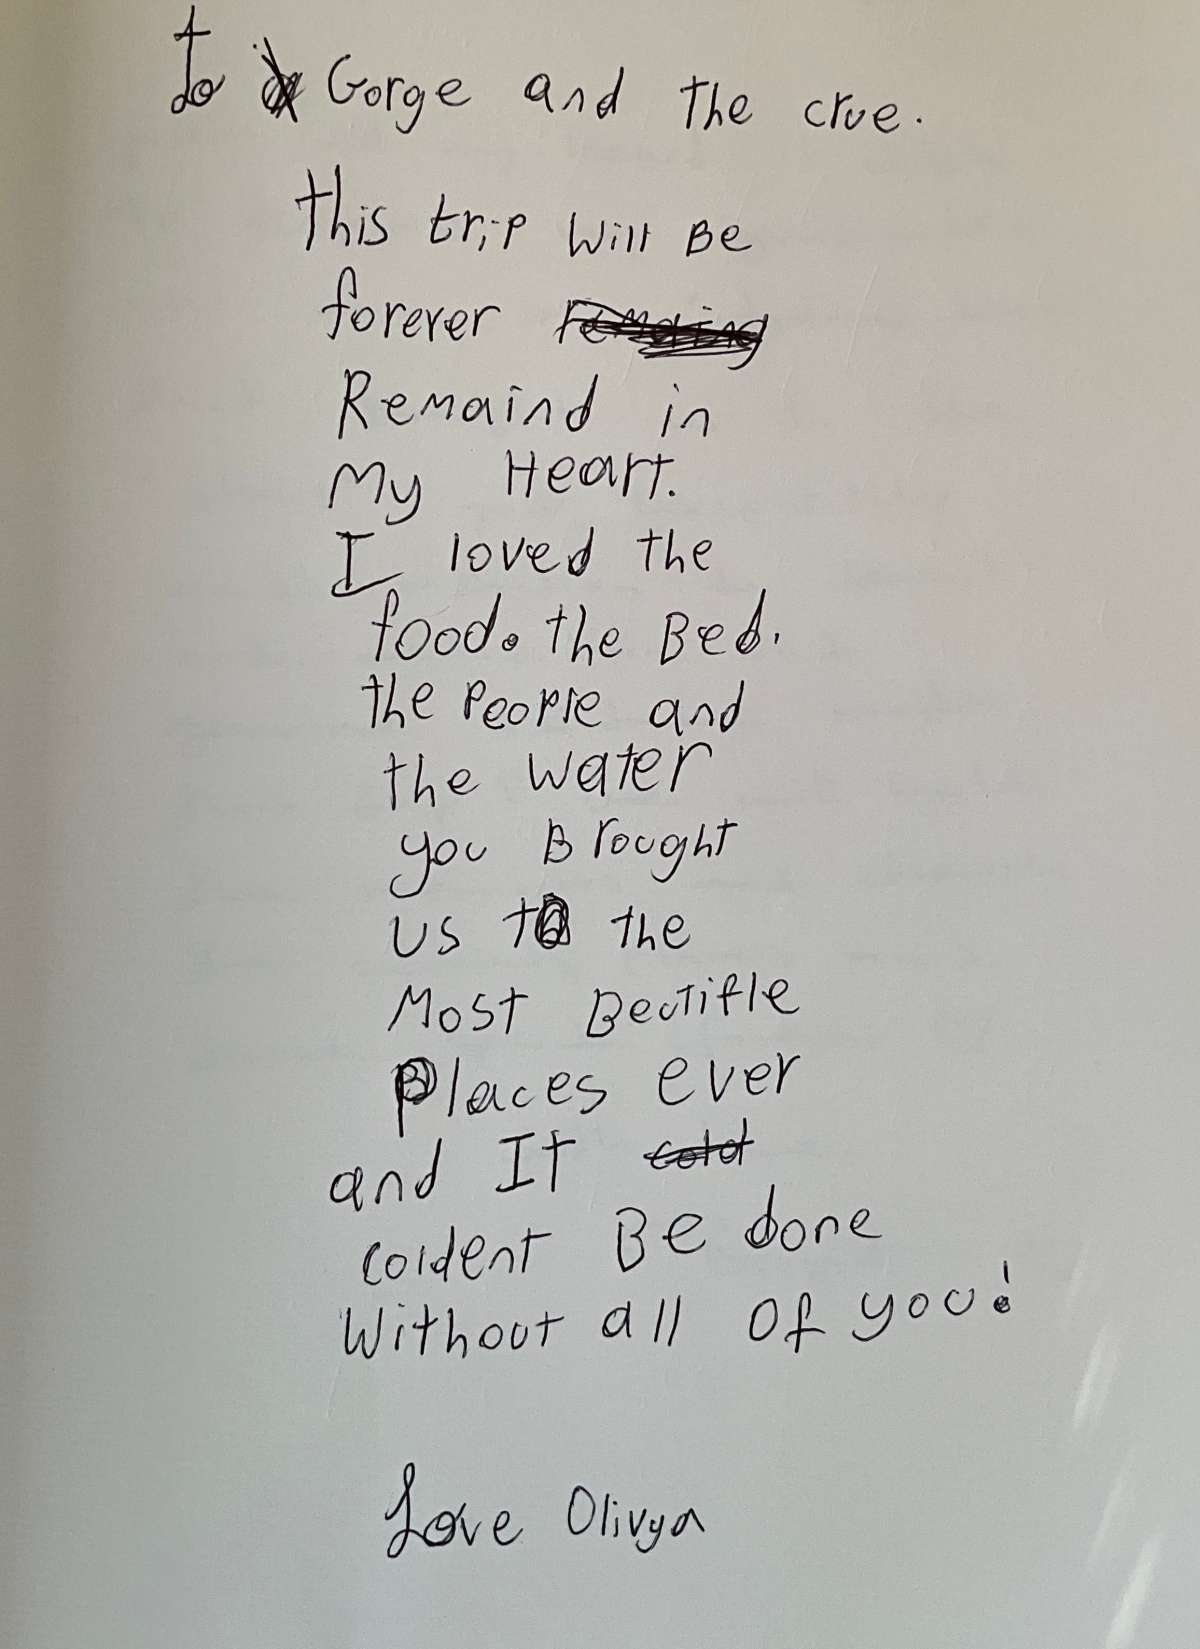 to Gorge and the crue.
this trip will Be
forever
Remaind in
My Heart.
I loved the
food. the Bed.
the People and
the water
you Brought
us to the
Most Beutifle
Places ever
and It cold
coldent Be done
Without all of you!
Love Olivya